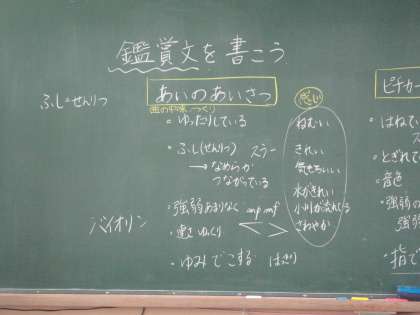 鑑賞文を書こう
ふし=せんりつ
あいのあいさつ
曲の中味 つくり
感じ
・ゆったりしている
ねむい
・ふし(せんりつ) スラー
→なめらか
つながっている
きれい
気もちいい
水がきれい
・強弱あまりなく mp mf
小川が流れてる
さわやか
バイオリン
・速さ ゆっくり
・ゆみでこする
ピチカー
・はねてい
・とぎれて
・音色
・強弱の
強弱
・指で